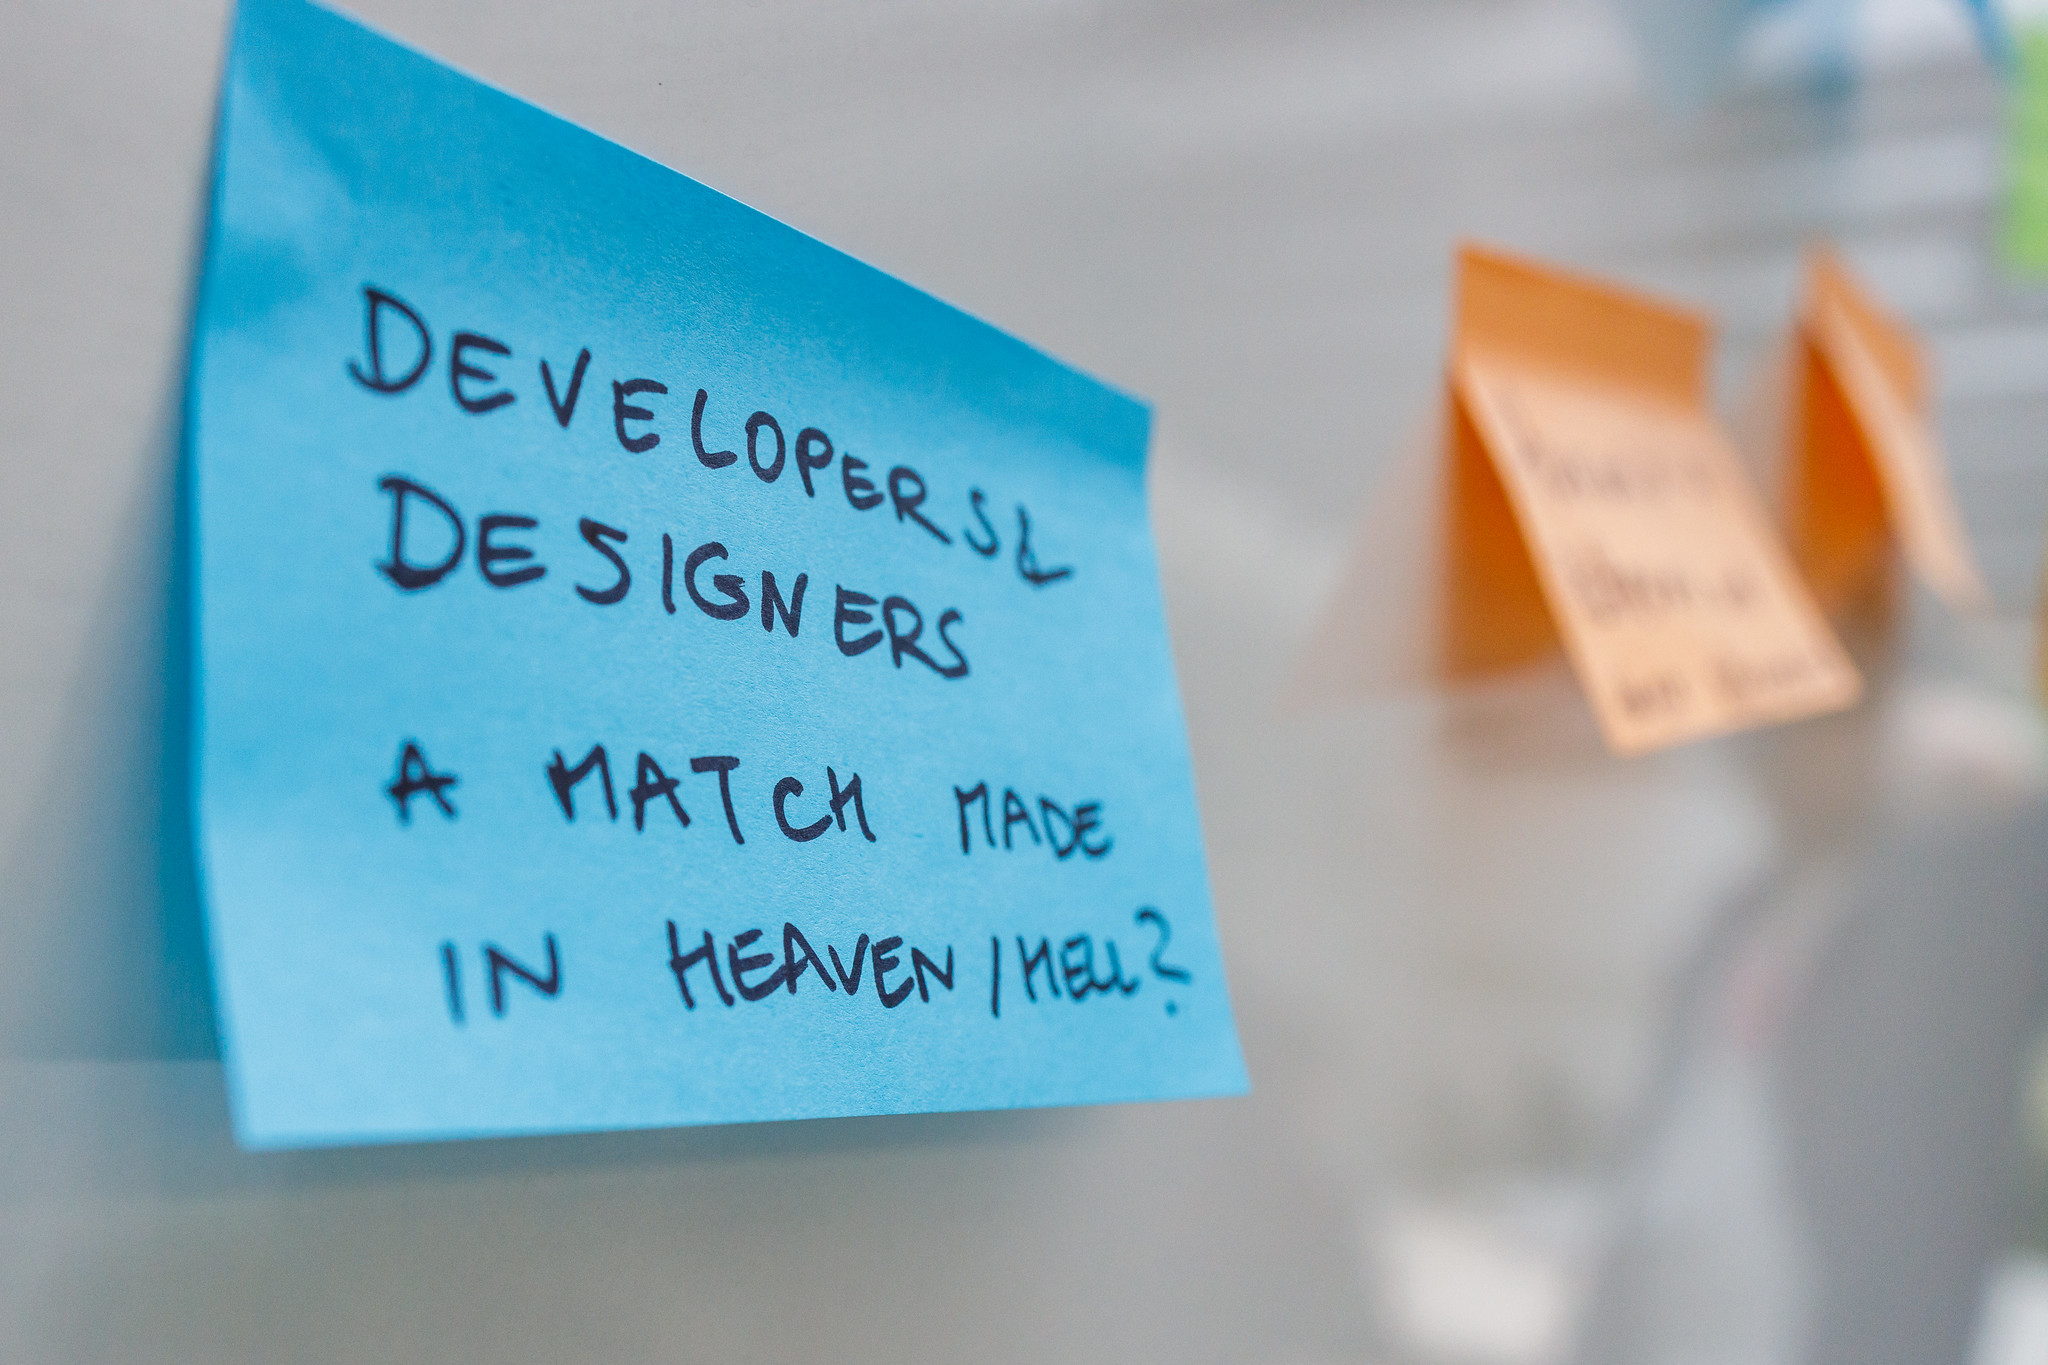 DEVELOPERS &
DESIGNERS
A MATCH MADE
IN HEAVEN/HELL?